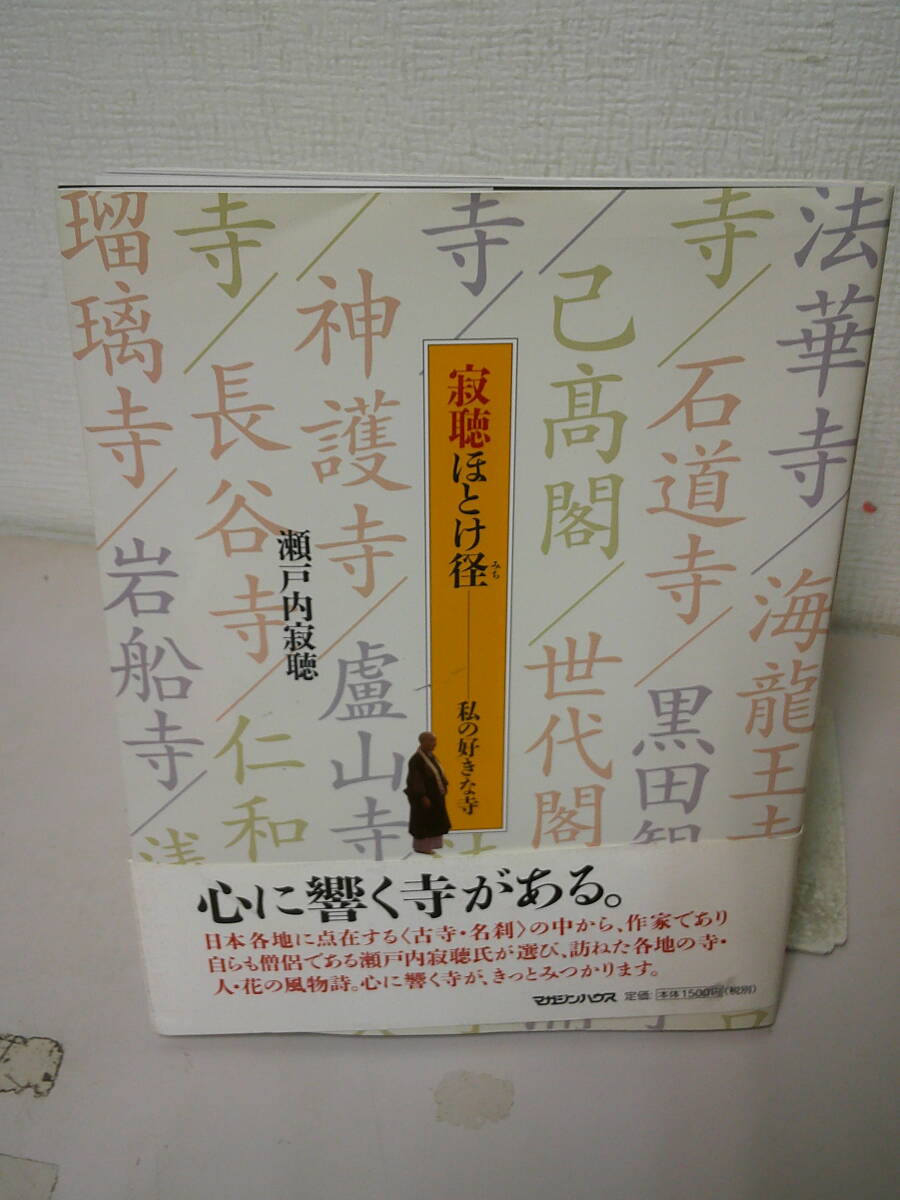 法華寺／海龍王寺
寺／石道寺／黒田
／己高閣／世代閣
寺／
寂聴ほとけ径
みち
私の好きな寺
／神護寺／盧山寺
瀬戸内寂聴
寺／長谷寺／仁和
瑠璃寺／岩船寺／浅
心に響く寺がある。
日本各地に点在する〈古寺・名刹〉の中から、作家であり
自らも僧侶である瀬戸内寂聴氏が選び、訪ねた各地の寺・
人・花の風物詩。心に響く寺が、きっとみつかります。
マガジンハウス 定価:本体1500円(税別)